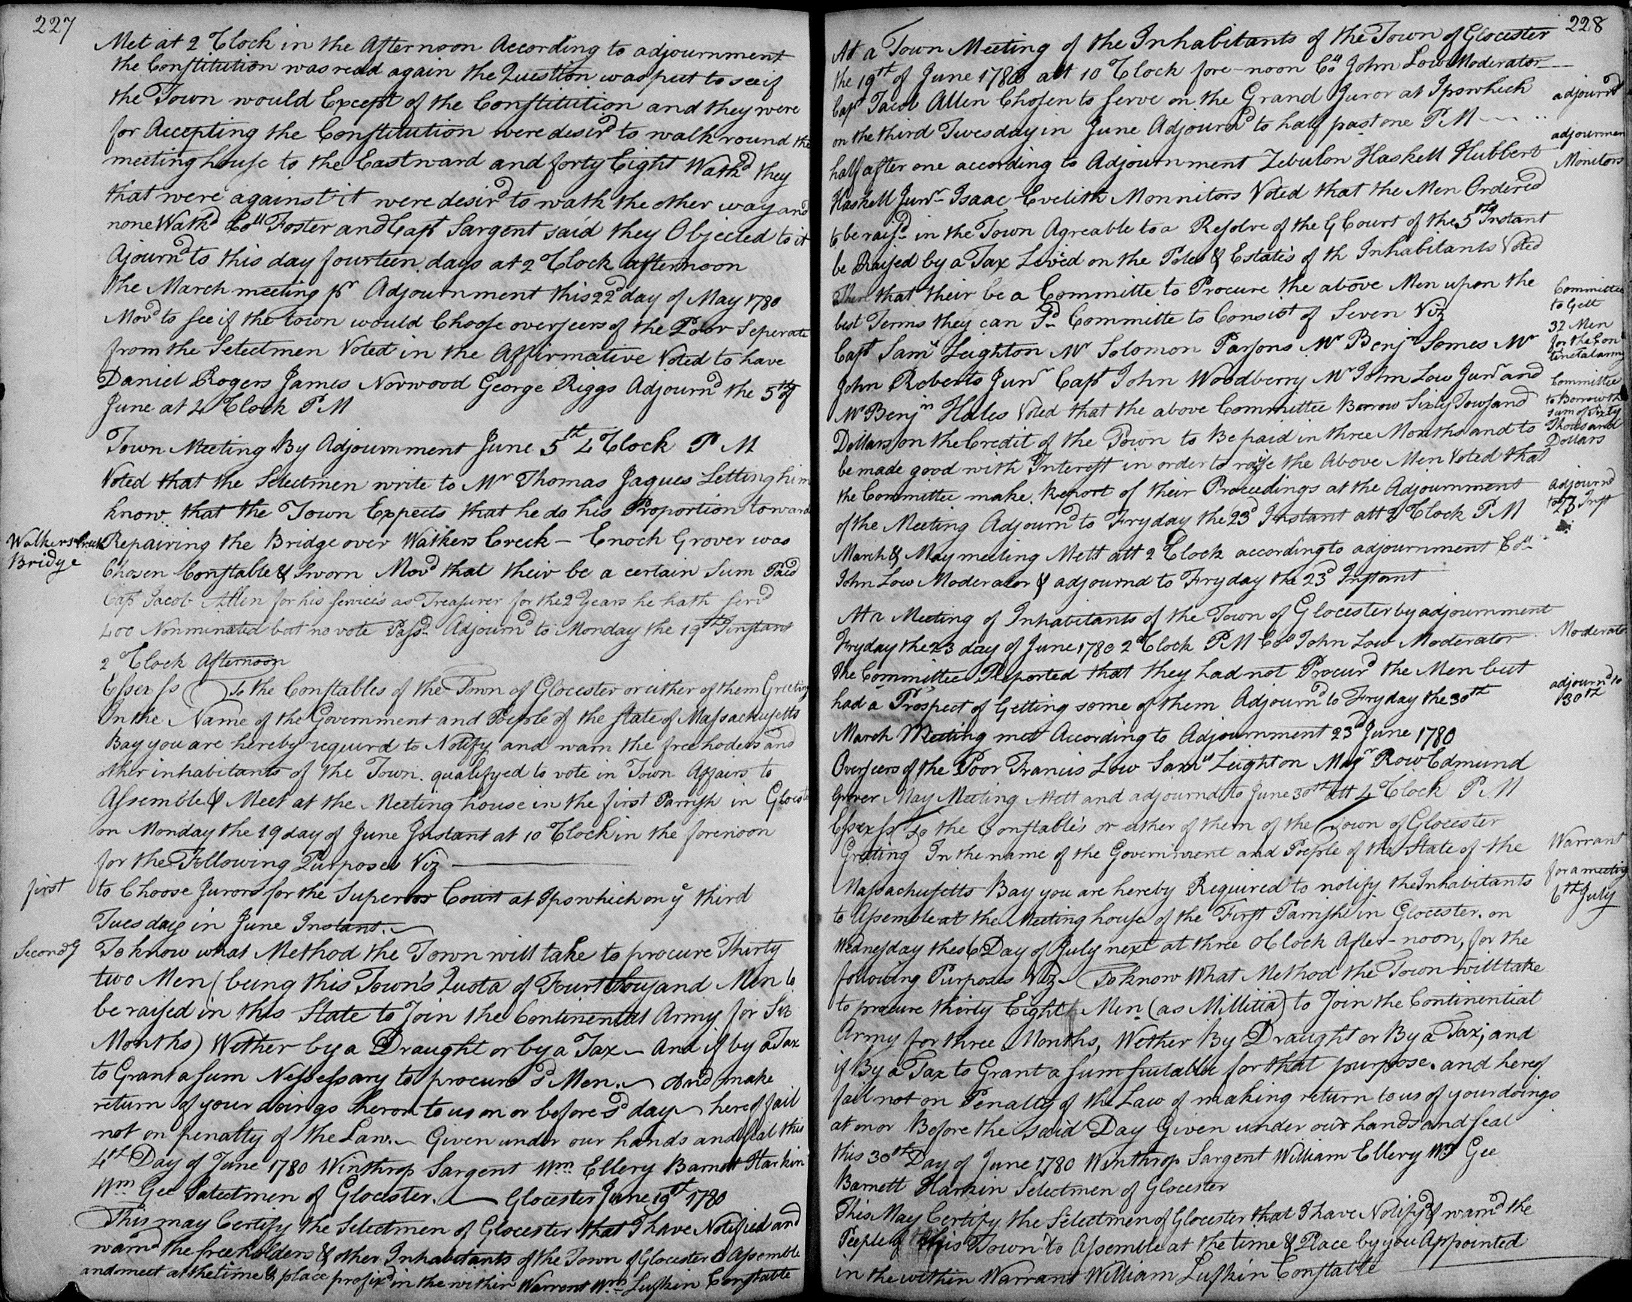 227
Met at 2 Clock in the Afternoon According to adjournment
the Constitution was read again the Question was put to see if
the Town would Except of the Constitution and they were
for Accepting the Constitution were desird to walk round the
meeting house to the Eastward and forty Eight Walkd they
that were against it were desird to walk the other way and
none Walkd Coll Foster and Capt Sargent said they Objected to it
Ajournd to this day fourteen days at 2 Clock afternoon
the March meeting pr Adjournment this 22d day of May 1780
Movd to see if the town would Choose overseers of the Poor Seperate
from the Selectmen Voted in the Affirmative Voted to have
Daniel Rogers James Norwood George Riggs Adjournd the 5th of
June at 4 Clock PM
Town Meeting By Adjournment June 5th 4 Clock P M
Voted that the Selectmen write to Mr Thomas Jaques Letting him
know that the Town Expects that he do his Proportion toward
Walkers Creek Bridge
Repairing the Bridge over Walkers Creek - Enoch Grover was
Chosen Constable & Sworn Movd that their be a certain Sum Paid
Capt Jacob Allen for his services as Treasurer for the 2 Years he hath servd
400 Nomminated but no vote Passd Adjournd to Monday the 19th Instant
2 Clock Afternoon
Essex ss To the Constables of the Town of Glocester or either of them Greeting
In the Name of the Government and People of the State of Massachusetts
Bay you are hereby requird to Notify and warn the freehoders and
other inhabitants of the Town qualifyed to vote in Town Affairs to
Assemble & Meet at the Meeting house in the first Parrish in Glocester
on Monday the 19 day of June Instant at 10 Clock in the forenoon
for the Following Purposes Viz
first
to Choose Jurors for the Superior Court at Ipswich on ye third
Tuesday in June Instant.
Secondly
To know what Method the Town will take to procure Thirty
two Men (being this Town's Quota of Four thousand Men to
be raised in this State to Join the Continental Army for Six
Months) Wether by a Draught or by a Tax - And if by a Tax
to Grant a sum Nessessary to procure sd Men. - And make
return of your doings hereon to us on or before sd day - hereof fail
not on penalty of the Law. - Given under our hands and seal this
4th Day of June 1780 Winthrop Sargent Wm Ellery Barnett Harkin
Wm Gee Selectmen of Glocester. - Glocester June 19th 1780
This may Certify the Selectmen of Glocester that I have Notified and
warnd the freeholders & other Inhabitants of the Town of Glocester to Assemble
and meet at the time & place prefixd in the within Warrant Wm Lufkin Constable
228
At a Town Meeting of the Inhabitants of the Town of Glocester
the 19th of June 1780 att 10 Clock fore-noon Coll John Low Moderator
Capt Jacob Allen Chosen to serve on the Grand Juror at Ipswhich
adjournd
on the third Tuesday in June Adjournd to half past one P M
adjournmen
half after one according to Adjournment Zebulon Haskell Hubbert
Monitors
Haskell Junr Isaac Evelith Monnitors Voted that the Men Ordered
to be raisd in the Town Agreable to a Resolve of the G Court of the 5th Instant
be Raised by a Tax Levied on the Poles & Estates of th Inhabitants Voted
that their be a Committe to Procure the above Men upon the
Committee to Gett 32 Men for the Continetal army
best Terms they can Sd Committe to Consist of Seven Viz
Capt Saml Leighton Mr Solomon Parsons Mr Benjn Somes Mr
John Roberts Junr Capt John Woodberry Mr John Low Junr and
Committee to Borrow the sum of sixty Thousand Dollars
Mr Benjn Hales Voted that the above Committee Borrow Sixty Thousand
Dollars on the Credit of the Town to Be paid in three Months and to
be made good with Interest in order to raise the Above Men Voted that
the Committee make Report of their Proceedings at the Adjournment
adjournd to 23 Inst
of the Meeting Adjournd to Fryday the 23d Instant att 2 Clock P M
March & May meeting Mett att 2 Clock according to adjournment Coll
John Low Moderator & adjournd to Fryday the 23d Instant
At a Meeting of Inhabitants of the Town of Glocester by adjournment
Moderator
Fryday the 23 day of June 1780 2 Clock P M Coll John Low Moderator
the Committee Reported that they had not Procurd the Men but
adjournd to 30th
had a Prospect of Getting some of them Adjournd to Fryday the 30th
March Meeting met According to Adjournment 23d June 1780
Overseers of the Poor Francis Low Saml Leighton Majr Row Edmund
Grover May Meeting Mett and adjournd to June 30th att 4 Clock P M
Essex ss To the Constables or either of them of the Town of Glocester
Warrant for a meeting 6th July
Greeting In the name of the Government and People of the State of the
Massachusetts Bay you are hereby Required to notify the Inhabitants
to Assemble at the Meeting house of the First Parrish in Glocester. on
Wednesday the 6 Day of July next at three oClock After-noon, for the
following Purposes Viz - To know What Method the Town will take
to procure thirty Eight Men (as Millitia) to Join the Continential
Army for three Months, Wether By Draught or By a Tax; and
if By a Tax to Grant a sum sutable for that purpose. and hereof
fail not on Penalty of the Law of making return to us of your doings
at on or Before the said Day Given under our hands and seal
this 30th Day of June 1780 Winthrop Sargent William Ellery Wm Gee
Barnett Harkin Selectmen of Glocester
This May Certify the Selectmen of Glocester that I have Notifyd & warnd the
People of this Town to Assemble at the time & Place by you Appointed
in the within Warrant William Lufkin Constable